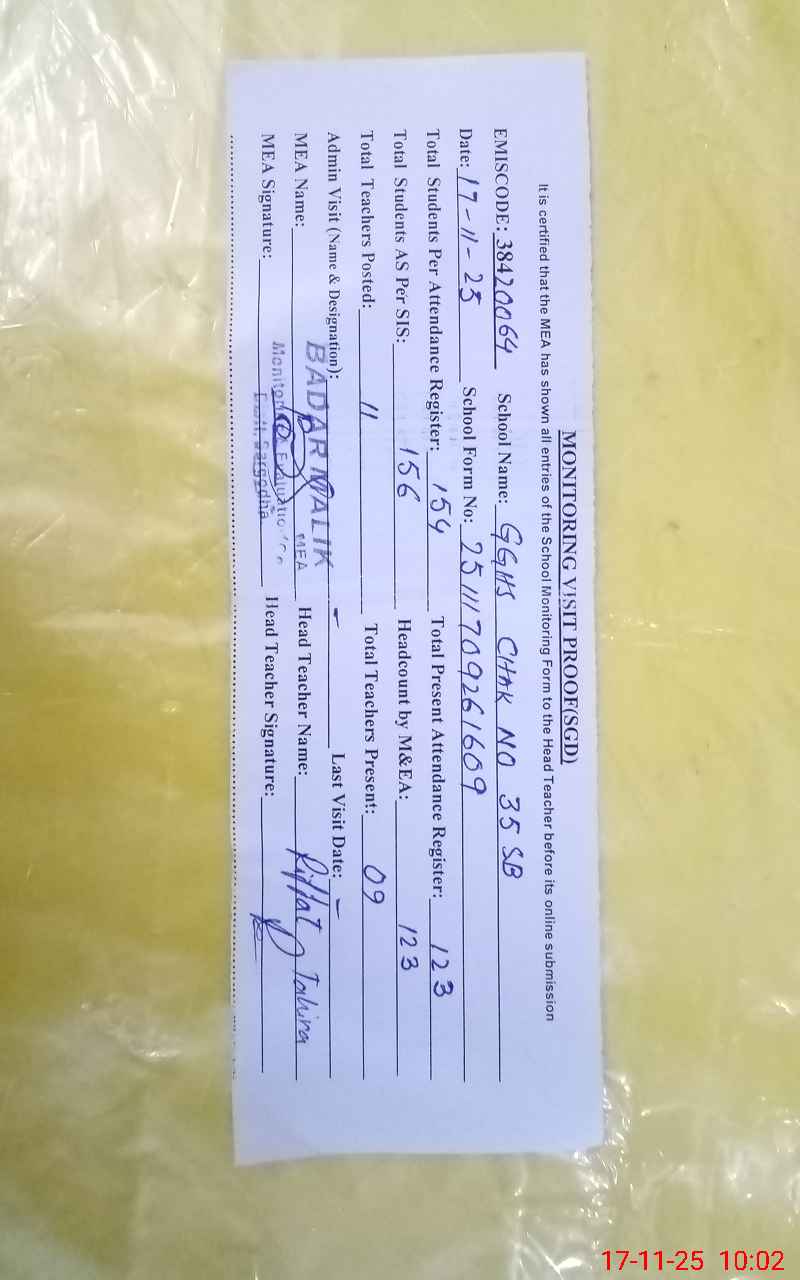 MONITORING VISIT PROOF(SGD)
It is certified that the MEA has shown all entries of the School Monitoring Form to the Head Teacher before its online submission
EMISCODE: 38420064 School Name: GGHS CHAK NO 35 SB
Date: 17-11-25 School Form No: 25111709261609
Total Students Per Attendance Register: 154 Total Present Attendance Register: 123
Total Students AS Per SIS: 156 Headcount by M&EA: 123
Total Teachers Posted: 11 Total Teachers Present: 09
Admin Visit (Name & Designation): - Last Visit Date: -
MEA Name: BADAR MALIK MEA Head Teacher Name: Riffat Tahira
MEA Signature: Monitoring Evaluation Sargodha Head Teacher Signature:
17-11-25 10:02